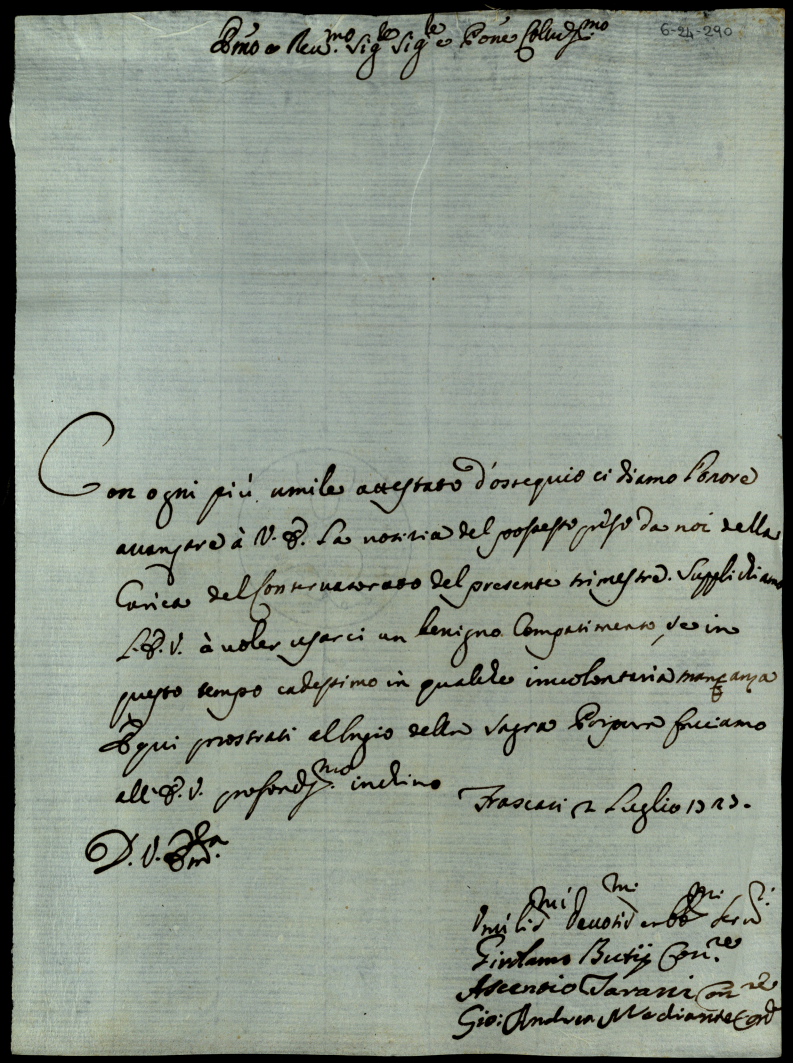 Em̃o e Reu.mo Sig.le Sig.le e Pōne Colend.mo
6-24-290
Con ogni più umile attestato d'ossequio ci diamo l'onore
auanzare à V. E. La notitia del possesso preso da noi della
Carica del Conseruatorato del presente trimestre. Supplichiamo
L'E. V. à uoler usarci un benigno Compatimento, se in
questo tempo cadessimo in qualche inuolontaria mancanza
E qui prostrati al bagio della Sagra Porpora facciamo
all'E. V. profond.mo inchino
Frascati 2 Luglio 1723.
D. V. Em.za
Umil.mi Deuot.mi et obb.mi Ser.ri
Girolamo Butij Con.re
Ascensio Tarani Con.re
Gio: Andrea